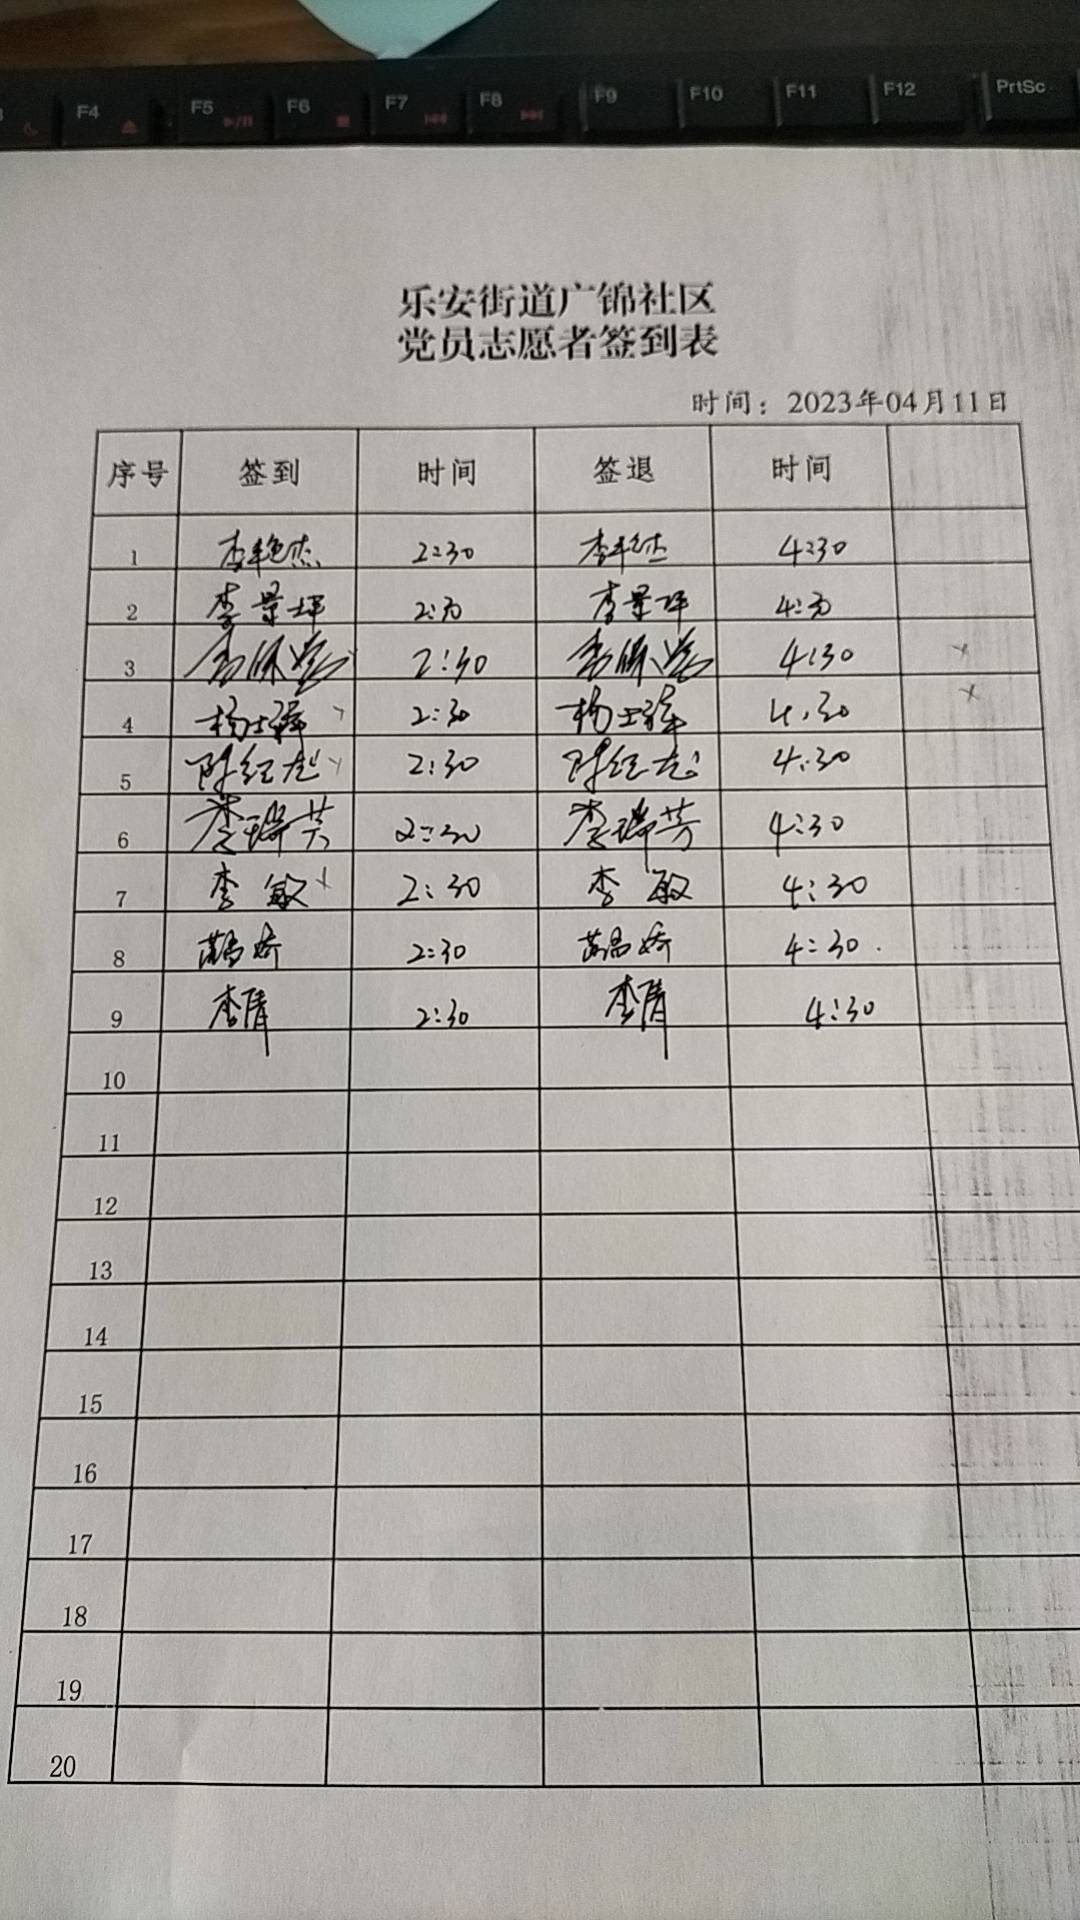 F4 F5 F6 F7 F8 F9 F10 F11 F12 PrtSc
乐安街道广锦社区
党员志愿者签到表
时间：2023年04月11日
序号 签到 时间 签退 时间
1 李艳杰 2:30 李艳杰 4:30
2 李景坪 2:30 李景坪 4:30
3 2:30 4:30 x
4 杨士 2:30 杨士 4:30 x
5 陈红 2:30 陈红 4:30
6 李瑞芳 2:30 李瑞芳 4:30
7 李敏 x 2:30 李敏 4:30
8 2:30 4:30
9 李倩 2:30 李倩 4:30
10
11
12
13
14
15
16
17
18
19
20